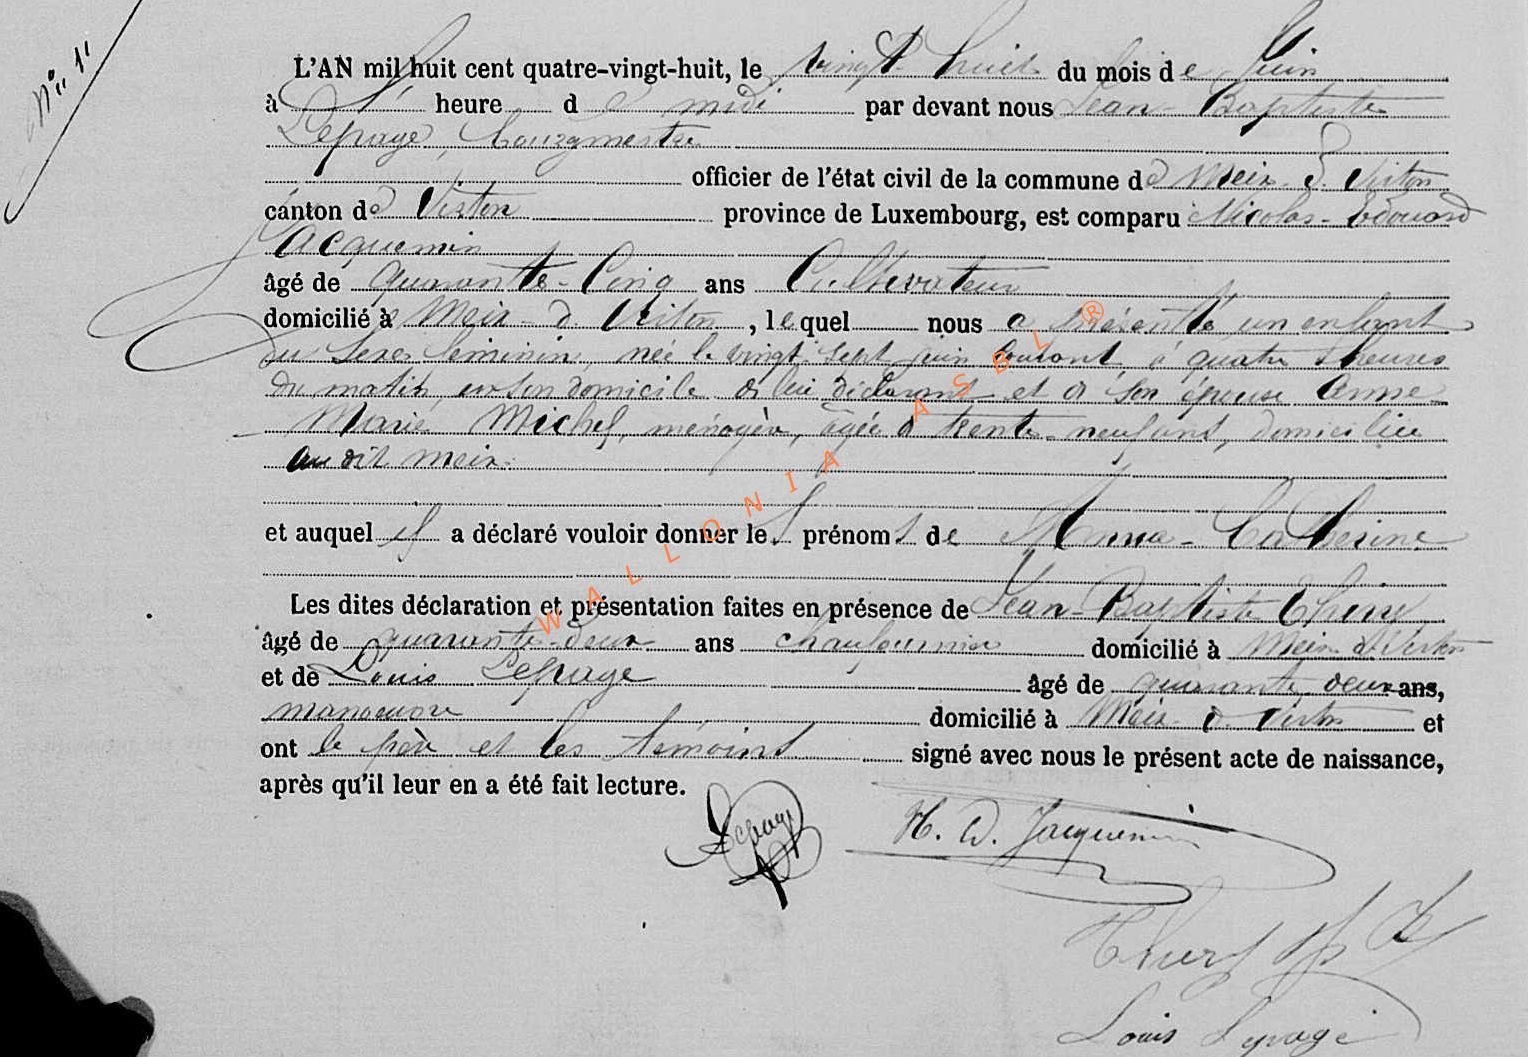 N° 11
L'AN mil huit cent quatre-vingt-huit, le vingt huit du mois de Juin
à heure de midi par devant nous Jean-Baptiste
Lepage, bourgmestre
officier de l'état civil de la commune de Meix d. Virton
canton de Virton province de Luxembourg, est comparu Nicolas-Edouard
Jacquemin
âgé de quarante-Cinq ans Cultivateur
domicilié à Meix-d. Virton, lequel nous a présenté un enfant
du sexe féminin, née le vingt sept juin courant, à quatre heures
du matin, en son domicile de lui déclarant et de son épouse Anne-
Marie Michel, ménagère, âgée de trente-neuf ans, domiciliée
au dit Meix.
et auquel il a déclaré vouloir donner les prénoms de Anna-Catherine
Les dites déclaration et présentation faites en présence de Jean-Baptiste Thiry
âgé de quarante-deux ans chaufournier domicilié à Meix d. Virton
et de Louis Lepage âgé de quarante deux ans,
manoeuvre domicilié à Meix d. Virton et
ont le père et les témoins signé avec nous le présent acte de naissance,
après qu'il leur en a été fait lecture.
Lepage
N. D. Jacquemin
Thiry
Louis Lepage
WALLONIA ASBL ®